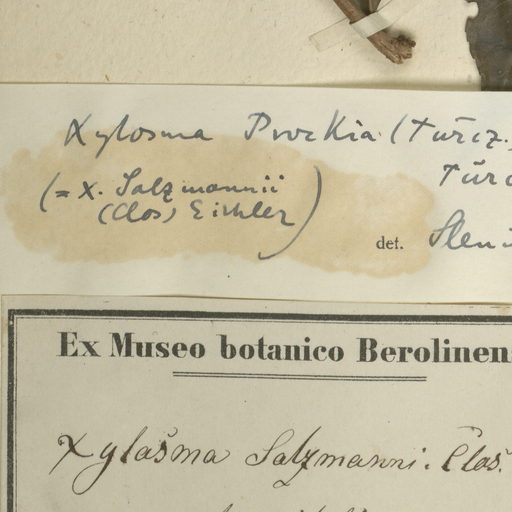 Xylosma Prockia (Turcz.)
Turc
(= X. Salzmannii
(Clos) Eichler)
det. Sleu
Ex Museo botanico Berolinen
Xylosma Salzmanni. Clos.